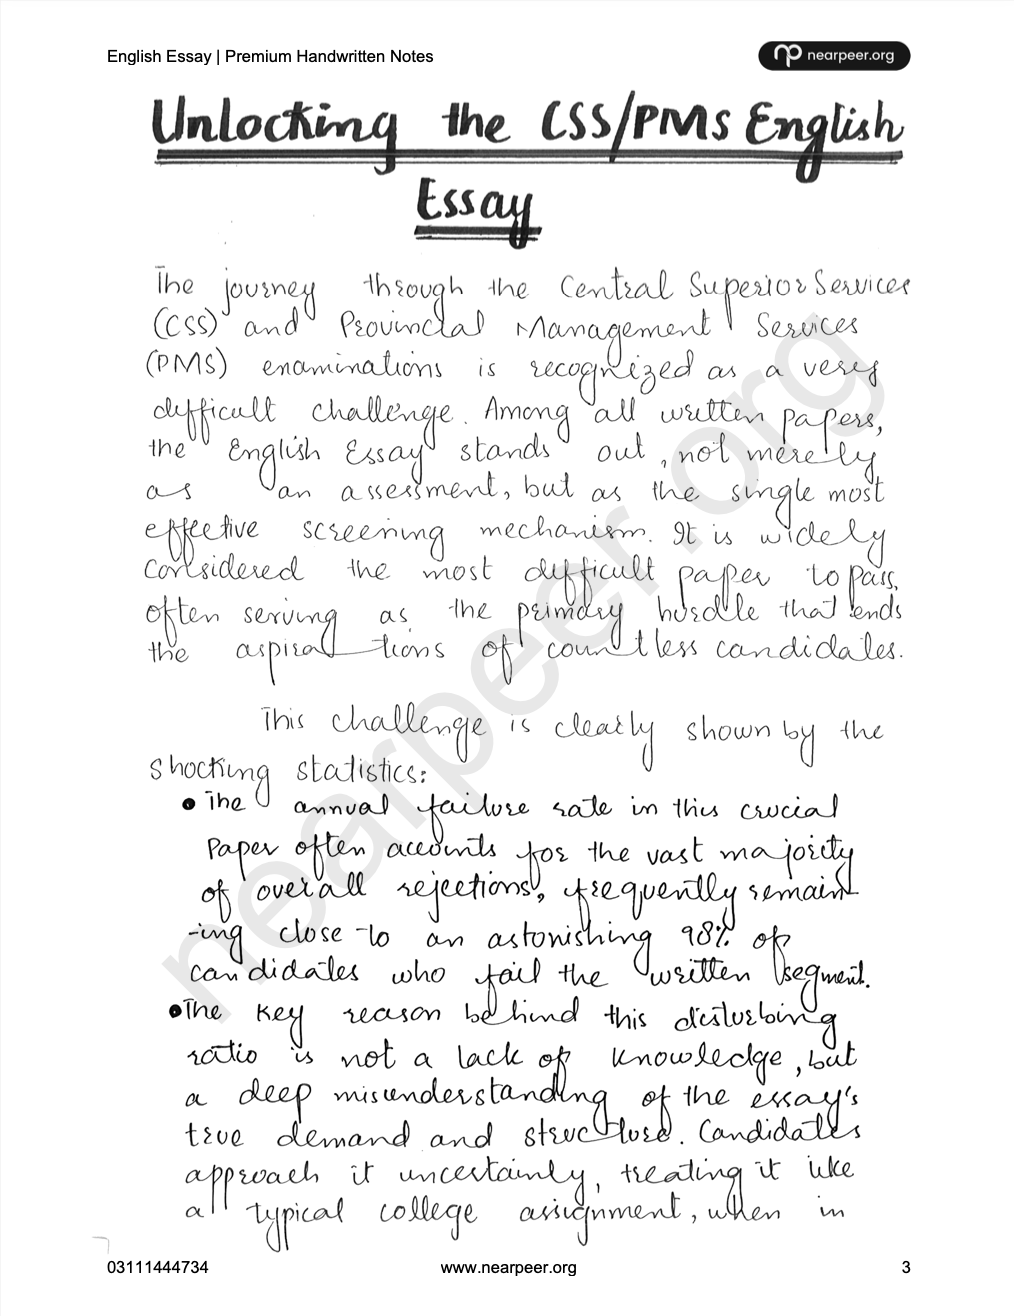 English Essay | Premium Handwritten Notes
nearpeer.org
Unlocking the CSS/PMS English
Essay
The journey through the Central Superior Services
(CSS) and Provincial Management Services
(PMS) enaminations is recognized as a very
difficult challenge. Among all written papers,
the English Essay stands out, not merely
as an assessment, but as the single most
effective screening mechanism. It is widely
considered the most difficult paper to pass,
often serving as the primary hurdle that ends
the aspirations of countless candidates.
This challenge is clearly shown by the
shocking statistics:
• The annual failure rate in this crucial
Paper often accounts for the vast majority
of overall rejections, frequently remain-
-ing close to an astonishing 98% of
candidates who fail the written segment.
• The key reason behind this disturbing
ratio is not a lack of knowledge, but
a deep misunderstanding of the essay's
true demand and structure. Candidates
approach it uncertainly, treating it like
a typical college assignment, when in
nearpeer.org
03111444734
www.nearpeer.org
3